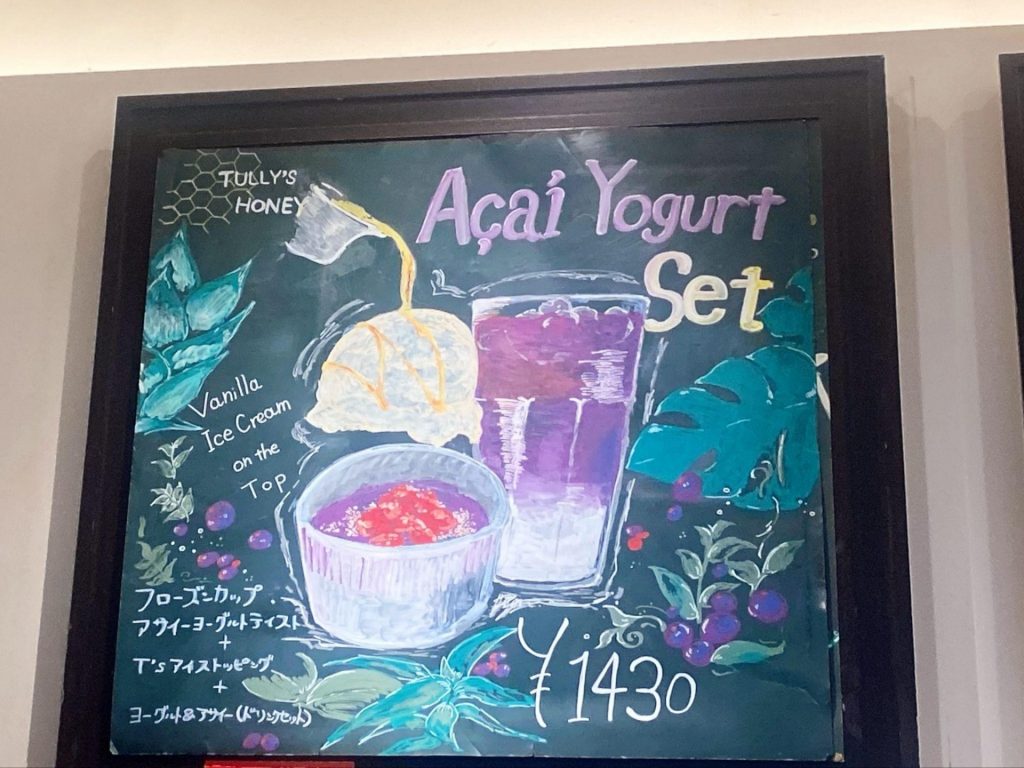 TULLY'S
HONEY
Açaí Yogurt
Set
Vanilla
Ice Cream
on the
Top
フローズンカップ
アサイーヨーグルトテイスト
+
T'sアイストッピング
+
ヨーグルト&アサイー(ドリンクセット)
¥1430